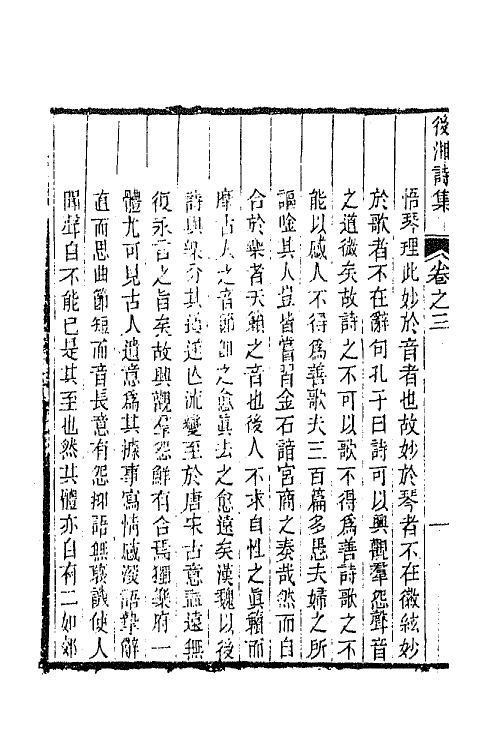 後湘詩集
卷之三
一
悟琴理此妙於音者也故妙於琴者不在徽絃妙
於歌者不在辭句孔子曰詩可以興觀羣怨聲音
之道微矣故詩之不可以歌不得為善詩歌之不
能以感人不得為善歌夫三百篇多愚夫婦之所
謳唫其人豈皆嘗習金石諳宮商之奏哉然而自
合於樂者天籟之音也後人不求自性之眞籟而
摩古人之音節師之愈眞去之愈遠矣漢魏以後
詩與樂分其道逆亾流變至於唐宋古意益遠無
復永言之旨矣故興觀羣怨鮮有合焉獨樂府一
體尤可見古人遺意為其據事寫情感激語摯辭
直而思曲節短而音長意有怨抑語無褒譏使人
聞聲自不能已是其至也然其體亦自有二如郊